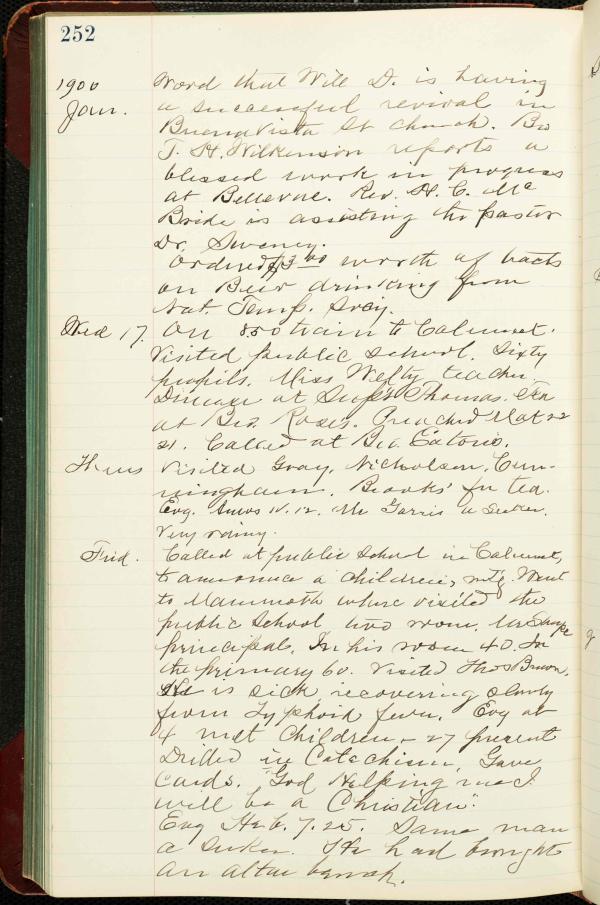 252
1900
Jan.
Word that Will D. is having
a successful revival in
Buena Vista St church. Bro
T. H. Wilkinson reports a
blessed work in progress
at Bellevue. Rev. H. C. Mc
Bride is assisting the pastor
Dr. Sweney.
Ordered $3 00 worth of facts
on Beer drinking from
Nat. Temp. Socy.
Wed 17. On 8.50 train to Calumet.
Visited public school. Sixty
pupils. Miss Welty teacher.
Dinner at Supt Thomas. Tea
at Bro. Roses. Preached Mat 22
21. Called at Bro. Eatons.
Thurs Visited Gray, Nicholson, Cun-
ningham. Brooks' for tea.
Evg. Amos IV. 12. Mr a seeker.
Very rainy.
Frid. Called at public school in Calumet,
to announce a children's mt'g. Went
to Mammoth where visited the
public school two room. Mr
principal. In his room 40. In
the primary 60. Visited Thos Brown.
He is sick, recovering slowly
from Typhoid fever. Evg at
4 met Children - 27 present
Drilled in Catechism, Gave
cards. "God Helping me I
will be a Christian".
Evg Heb. 7.25. Same man
a seeker. He had brought
an altar bench.